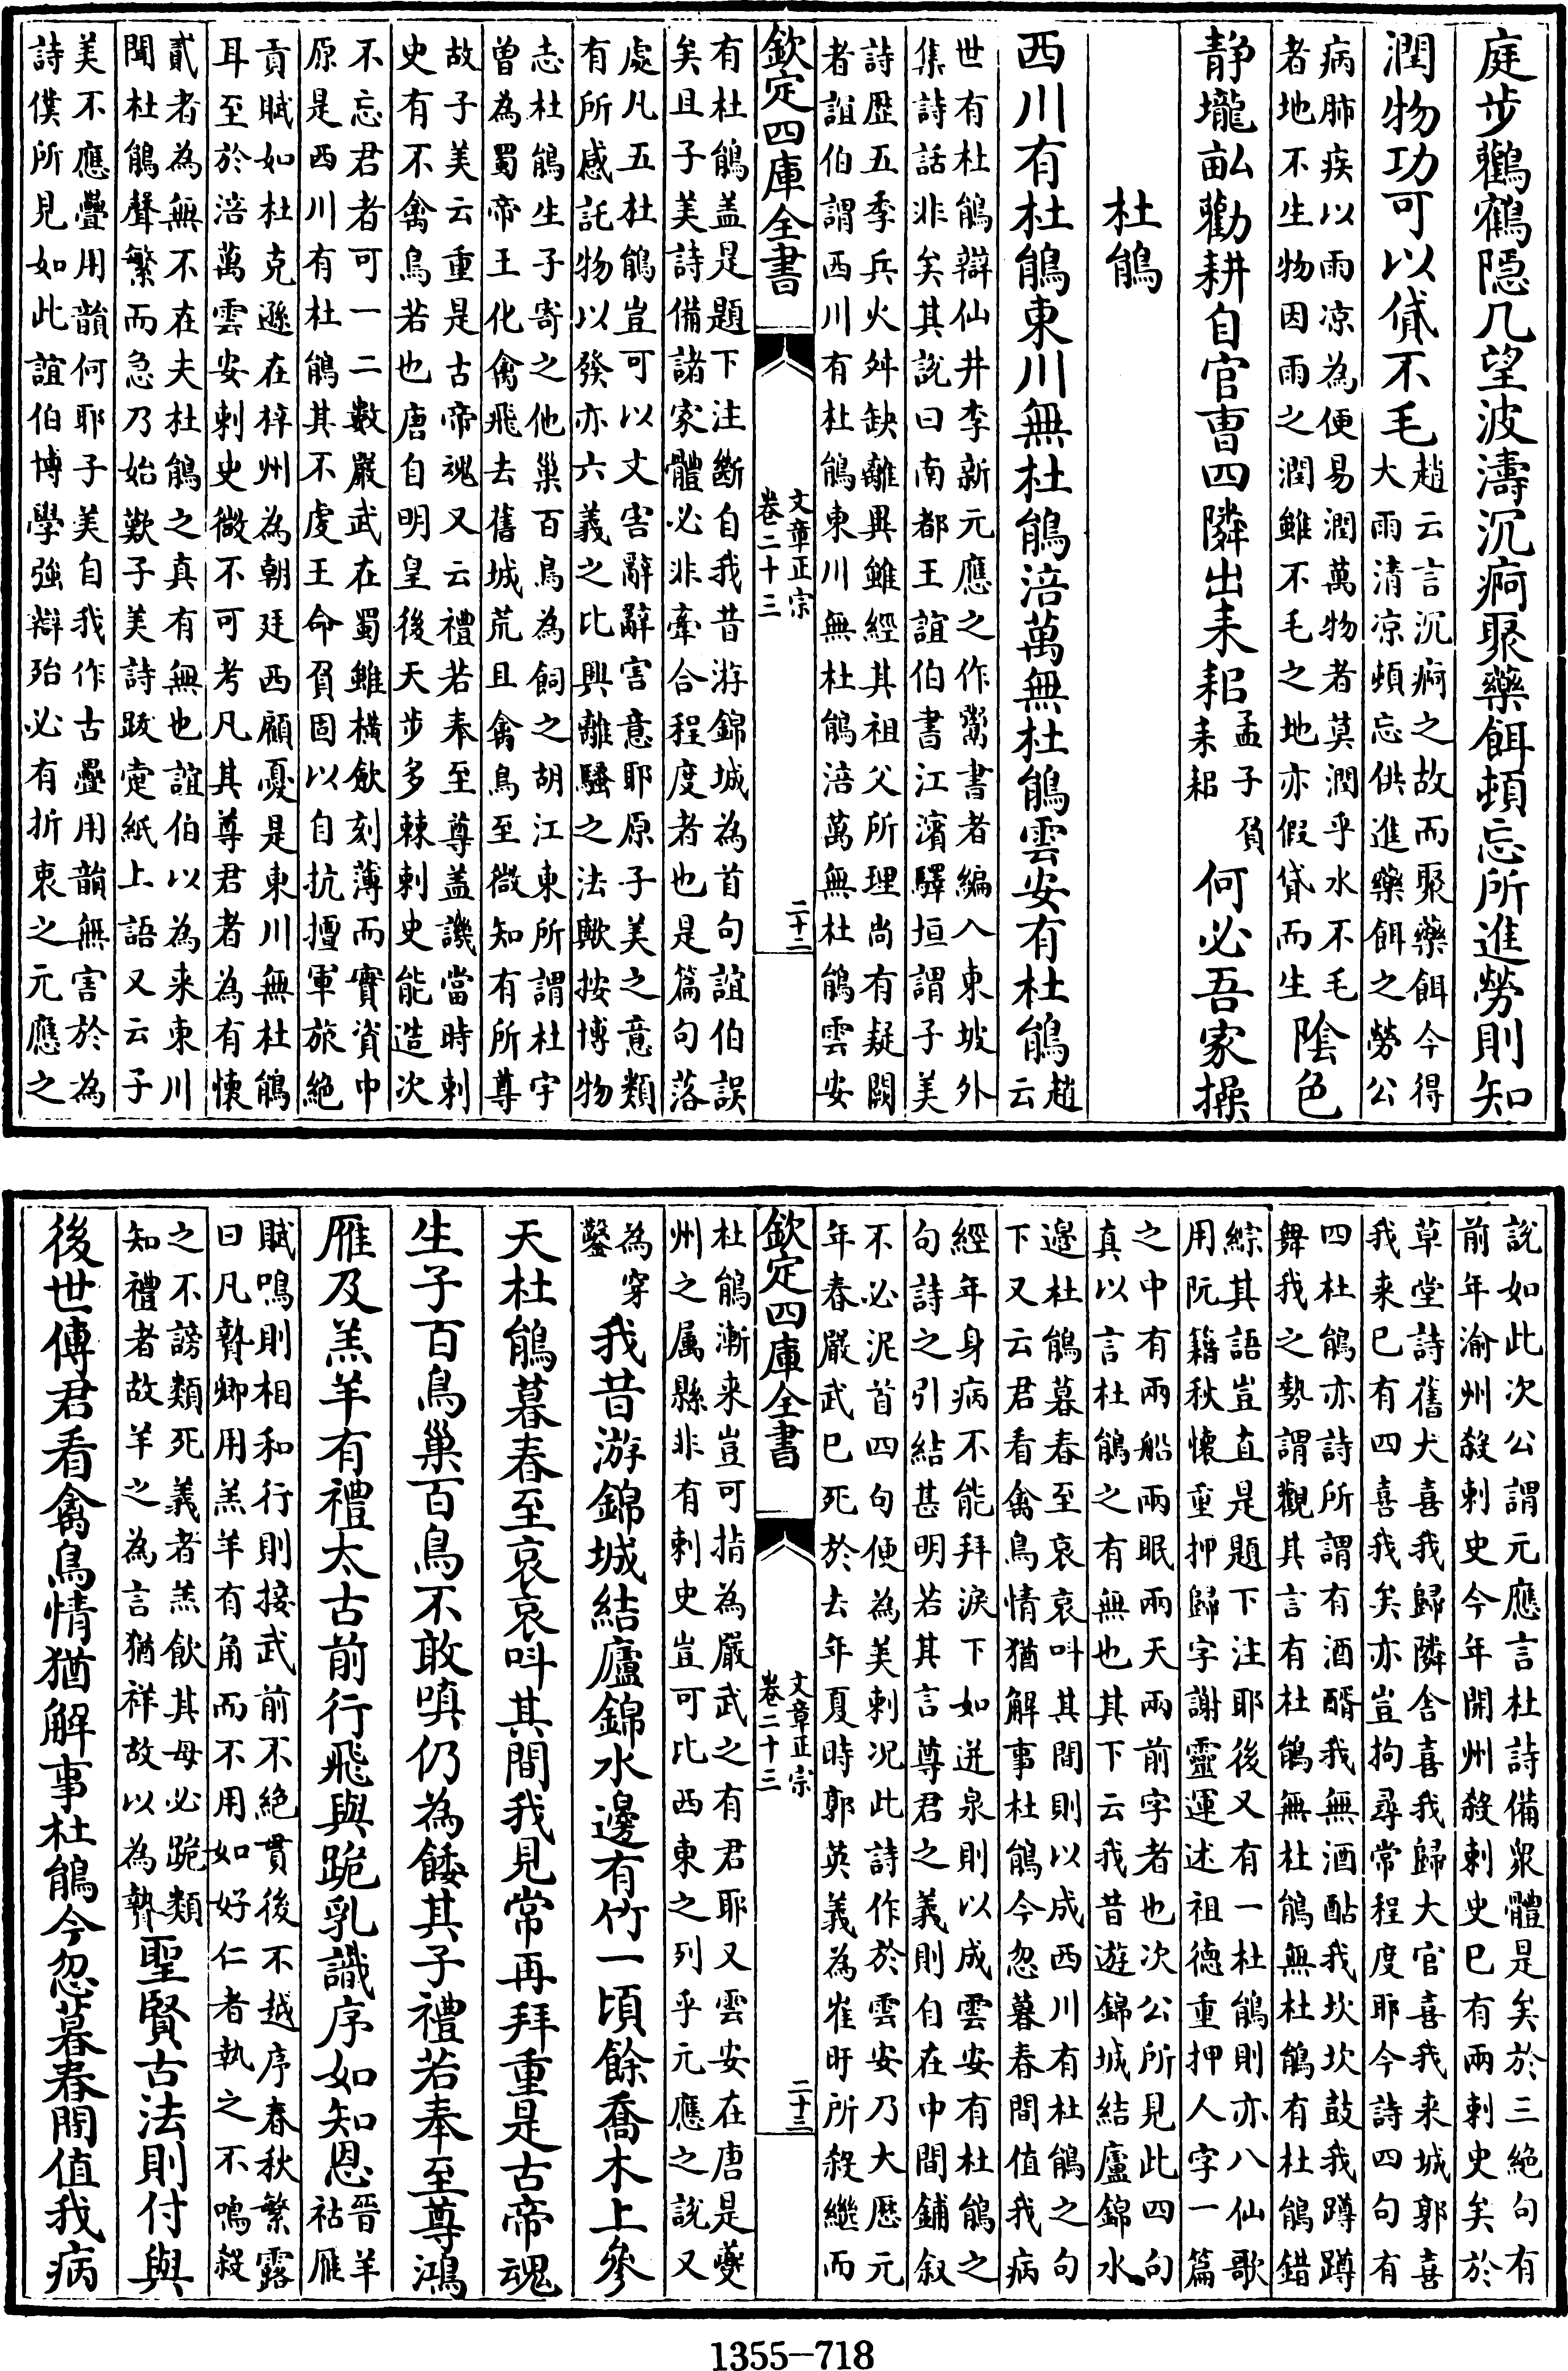 庭步鸛鶴隠几望波濤沉痾聚藥餌頓忘所進勞則知
潤物功可以貸不毛趙云言沉痾之故而聚藥餌今得
大雨清凉頓忘供進藥餌之勞公
病肺疾以雨凉為便易潤萬物者莫潤乎水不毛
者地不生物因雨之潤雖不毛之地亦假貸而生陰色
静壠畝勸耕自官曹四隣出耒耜孟子負
耒耜何必吾家操
杜鵑
西川有杜鵑東川無杜鵑涪萬無杜鵑雲安有杜鵑趙
云
世有杜鵑辯仙井李新元應之作鬻書者編入東坡外
集詩話非矣其說曰南都王誼伯書江濵驛垣謂子美
詩歴五季兵火舛缺離異雖經其祖父所理尚有疑闕
者誼伯謂西川有杜鵑東川無杜鵑涪萬無杜鵑雲安
欽定四庫全書
文章正宗
卷二十三
二十二
有杜鵑盖是題下注斷自我昔游錦城為首句誼伯誤
矣且子美詩備諸家體必非牽合程度者也是篇句落
處凡五杜鵑豈可以文害辭辭害意耶原子美之意類
有所感託物以發亦六義之比興離騷之法歟按博物
志杜鵑生子寄之他巢百鳥為飼之胡江東所謂杜宇
曽為蜀帝王化禽飛去舊城荒且禽鳥至微知有所尊
故子美云重是古帝魂又云禮若奉至尊盖譏當時刺
史有不禽鳥若也唐自明皇後天步多棘刺史能造次
不忘君者可一二數嚴武在蜀雖横歛刻薄而實資中
原是西川有杜鵑其不虔王命負固以自抗擅軍旅絶
貢賦如杜克遜在梓州為朝廷西顧憂是東川無杜鵑
耳至於涪萬雲安刺史微不可考凡其尊君者為有懷
貳者為無不在夫杜鵑之真有無也誼伯以為来東川
聞杜鵑聲繁而急乃始歎子美詩跋疐紙上語又云子
美不應疊用韻何耶子美自我作古疊用韻無害於為
詩僕所見如此誼伯博學強辯殆必有折衷之元應之
說如此次公謂元應言杜詩備衆體是矣於三絶句有
前年渝州殺刺史今年開州殺刺史巳有兩刺史矣於
草堂詩舊犬喜我歸隣舎喜我歸大官喜我来城郭喜
我来巳有四喜我矣亦豈拘尋常程度耶今詩四句有
四杜鵑亦詩所謂有酒醑我無酒酤我坎坎鼓我蹲蹲
舞我之勢謂觀其言有杜鵑無杜鵑無杜鵑有杜鵑錯
綜其語豈直是題下注耶後又有一杜鵑則亦八仙歌
用阮籍秋懷重押歸字謝靈運述祖德重押人字一篇
之中有兩船兩眠兩天兩前字者也次公所見此四句
真以言杜鵑之有無也其下云我昔遊錦城結廬錦水
邉杜鵑暮春至哀哀呌其間則以成西川有杜鵑之句
下又云君看禽鳥情猶解事杜鵑今忽暮春間值我病
經年身病不能拜淚下如迸泉則以成雲安有杜鵑之
句詩之引結甚明若其言尊君之義則自在中間鋪叙
不必泥首四句便為美刺况此詩作於雲安乃大歴元
年春嚴武巳死於去年夏時郭英義為崔旰所殺繼而
欽定四庫全書
文章正宗
卷二十三
二十三
杜鵑漸来豈可指為嚴武之有君耶又雲安在唐是夔
州之屬縣非有刺史豈可比西東之列乎元應之說又
為穿
鑿我昔游錦城結廬錦水邊有竹一頃餘喬木上參
天杜鵑暮春至哀哀呌其間我見常再拜重是古帝魂
生子百鳥巢百鳥不敢嗔仍為餧其子禮若奉至尊鴻
雁及羔羊有禮太古前行飛與跪乳識序如知恩晉羊
祜雁
賦鳴則相和行則接武前不絶貫後不越序春秋繁露
曰凡贄卿用羔羊有角而不用如好仁者執之不鳴殺
之不謗類死義者羔飲其母必跪類
知禮者故羊之為言猶祥故以為贄聖賢古法則付與
後世傳君看禽鳥情猶解事杜鵑今忽暮春間值我病
1355-718